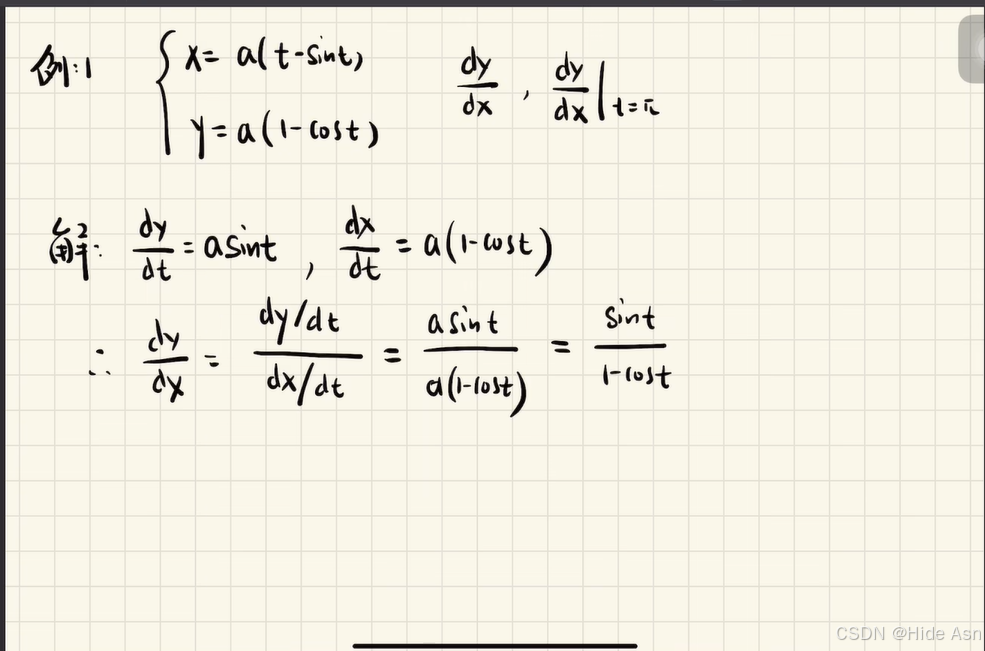 例:1 { x= a(t-sint) dy/dx , dy/dx|t=π
y=a(1-cost)
解: dy/dt = asint , dx/dt = a(1-cost)
∴ dy/dx = (dy/dt)/(dx/dt) = asint/a(1-cost) = sint/1-cost
CSDN @Hide Asn